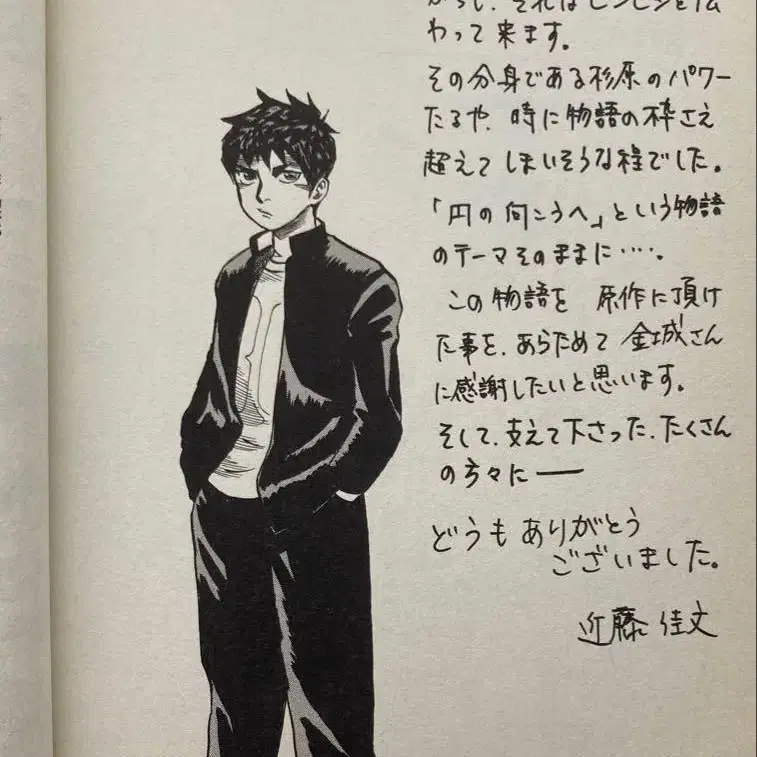 わって来ます。
その分身である杉原のパワー
たるや、時に物語の枠さえ
超えてしまいそうな程でした。
「円の向こうへ」という物語
のテーマそのままに‥‥。
この物語を 原作に頂け
た事を、あらためて 金城さん
に感謝したいと思います。
そして、支えて下さった、たくさん
の方々に――
どうもありがとう
ございました。
近藤 佳文